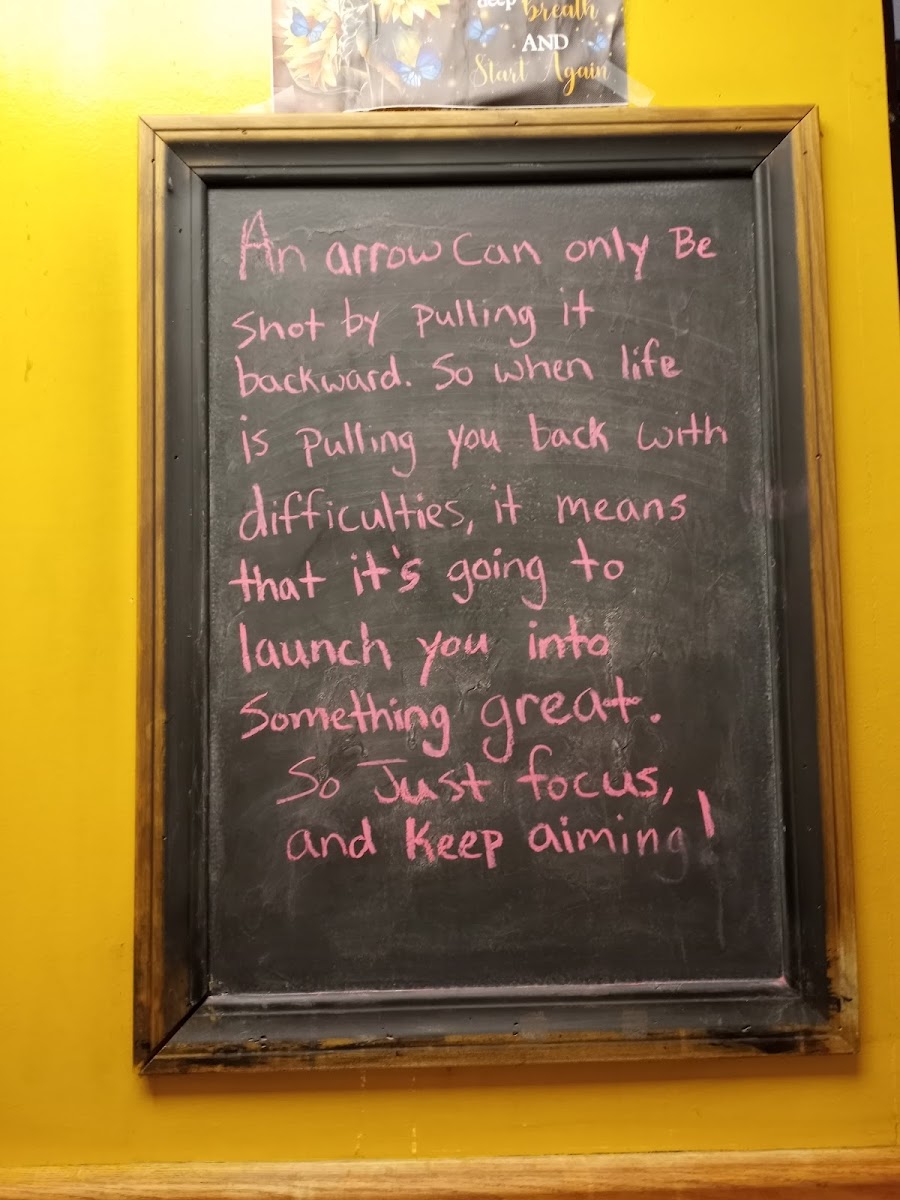 deep breath
AND
Start Again
An arrow Can only Be
shot by pulling it
backward. So when life
is pulling you back with
difficulties, it means
that it's going to
launch you into
Something great.
So Just focus,
and Keep aiming!